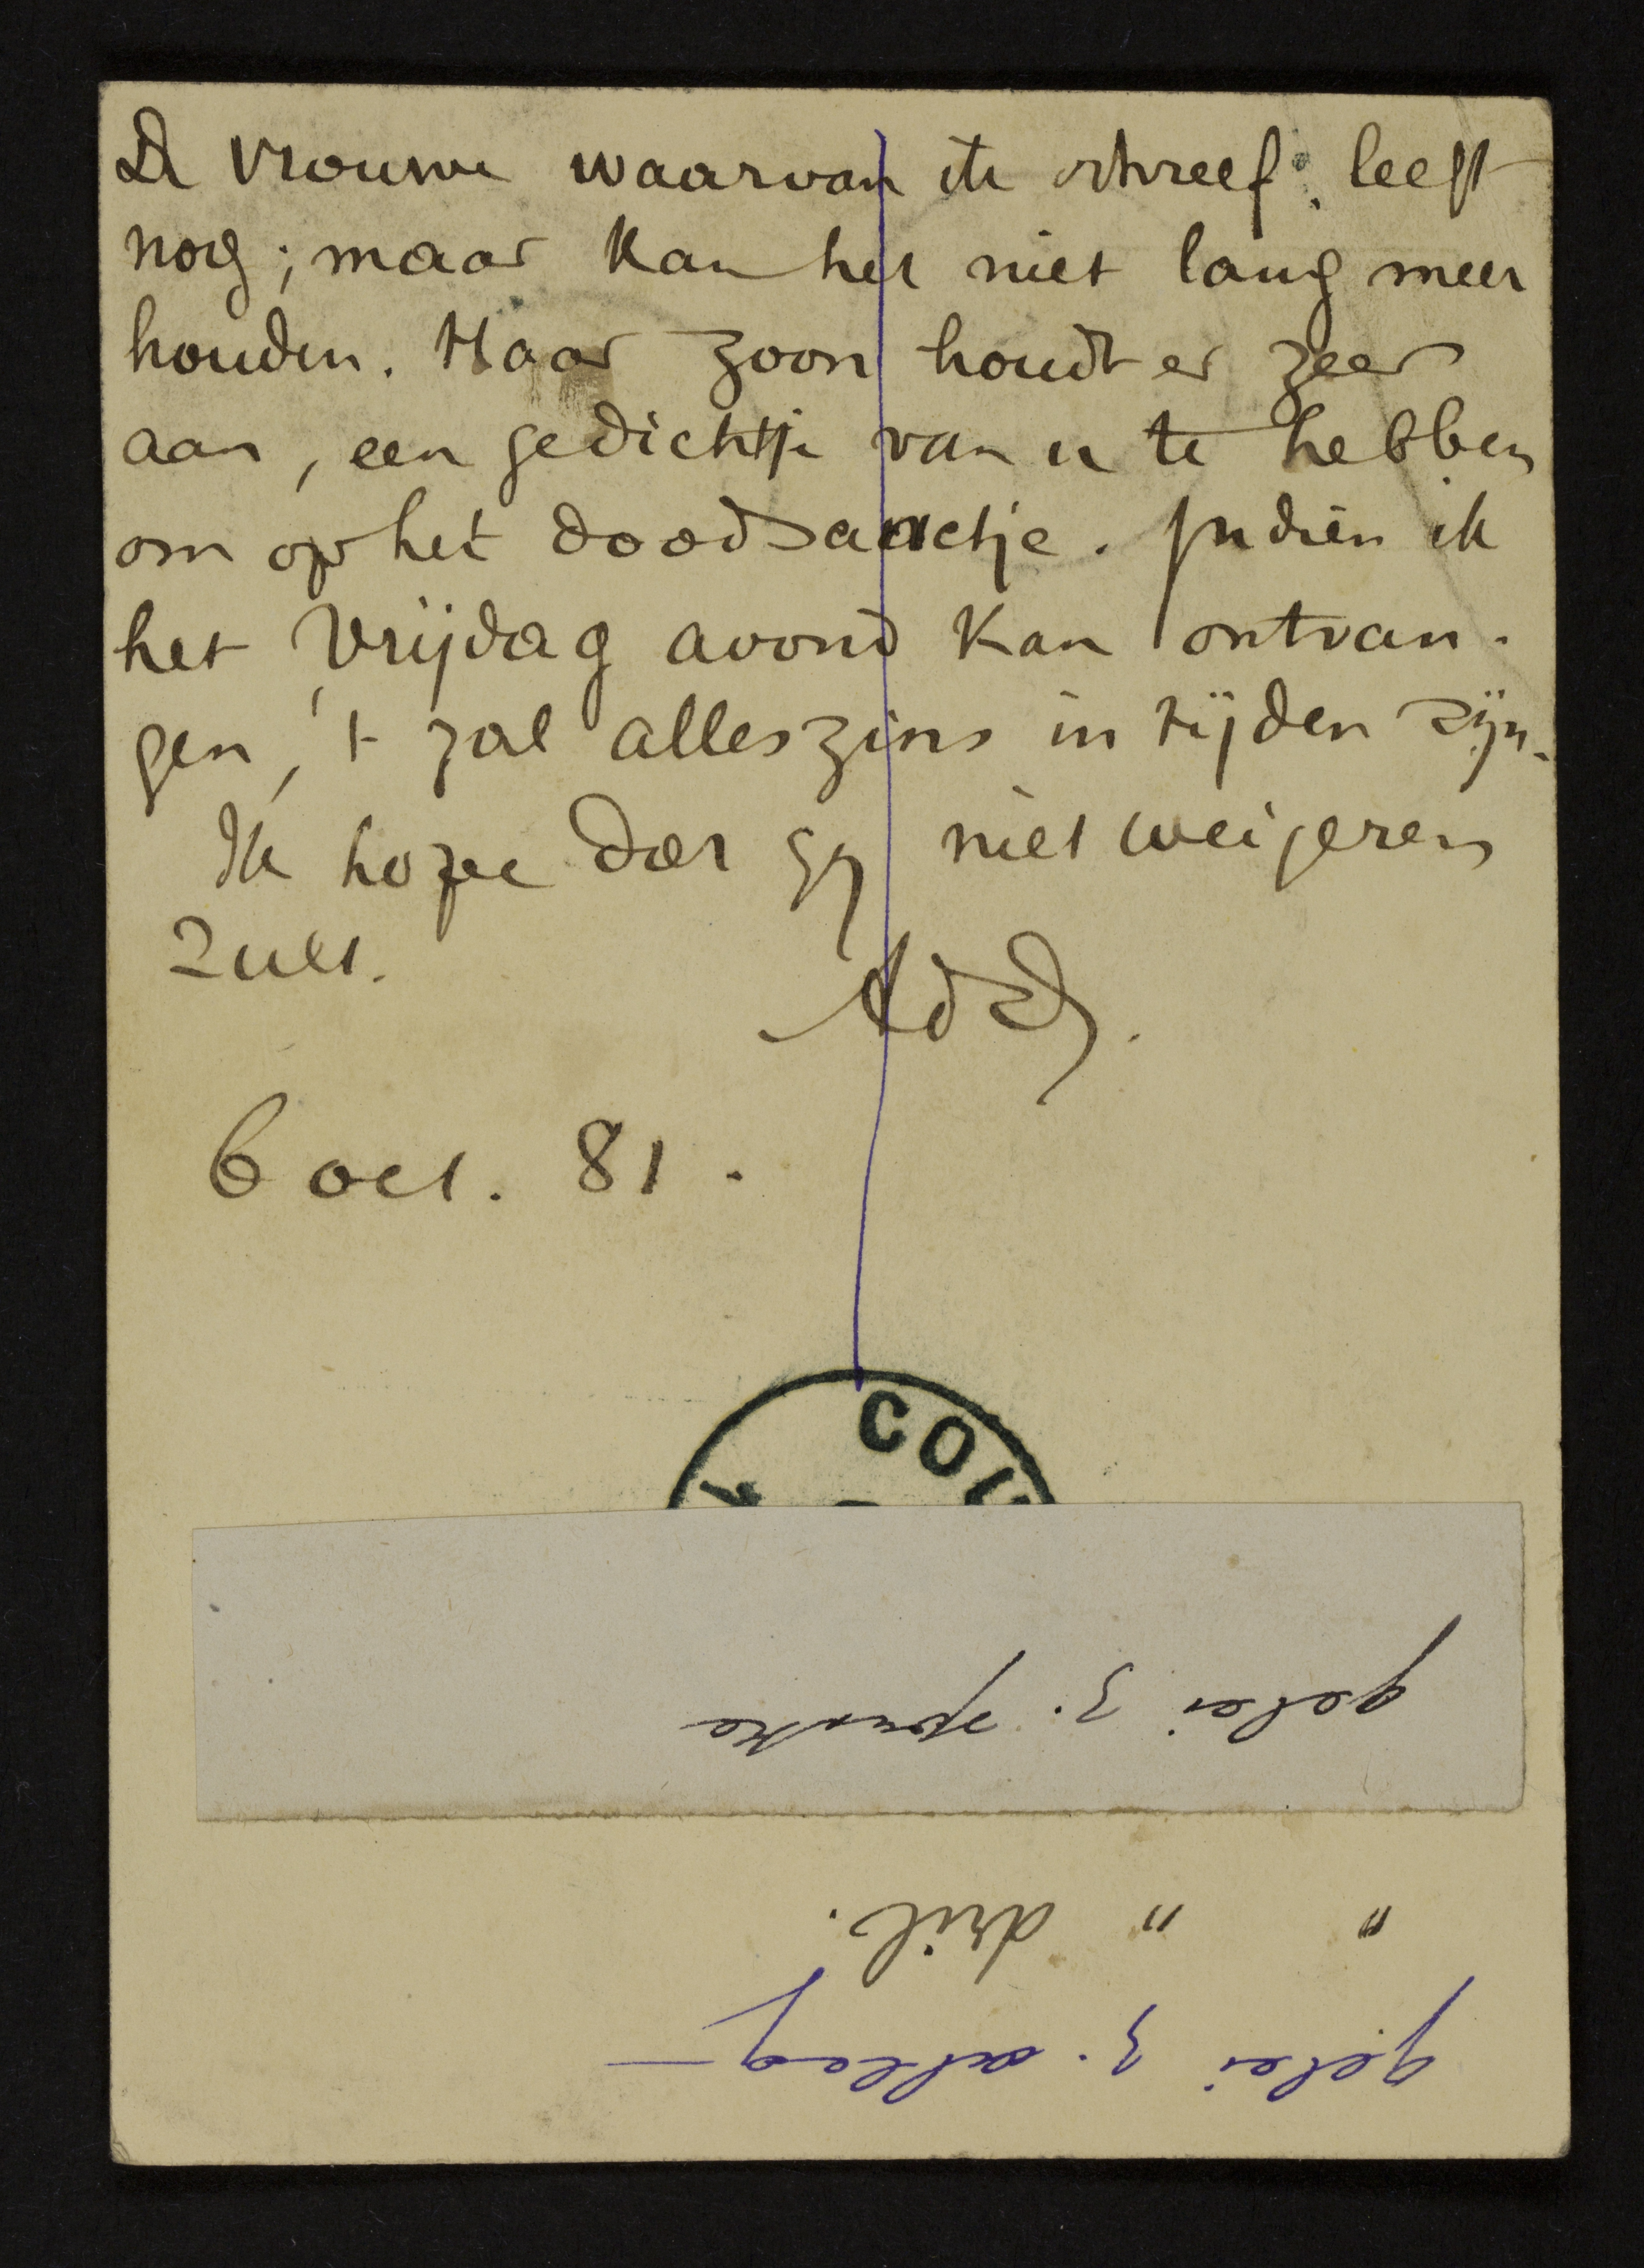 De vrouwe waarvan ik schreef, leeft
nog; maar kan het niet lang meer
houden. Haar zoon houdt er zeer
aan, een gedichtje van u te hebben
om op het doodsanctje. Indien ik
het Vrijdag avond kan ontvan-
gen, 't zal alleszins in tijden zijn.
Ik hope dat gij niet weigeren
zult.
AdC.
6 oct. 81.
COU
gelei z.
" " dril.
gelei z. aflaag